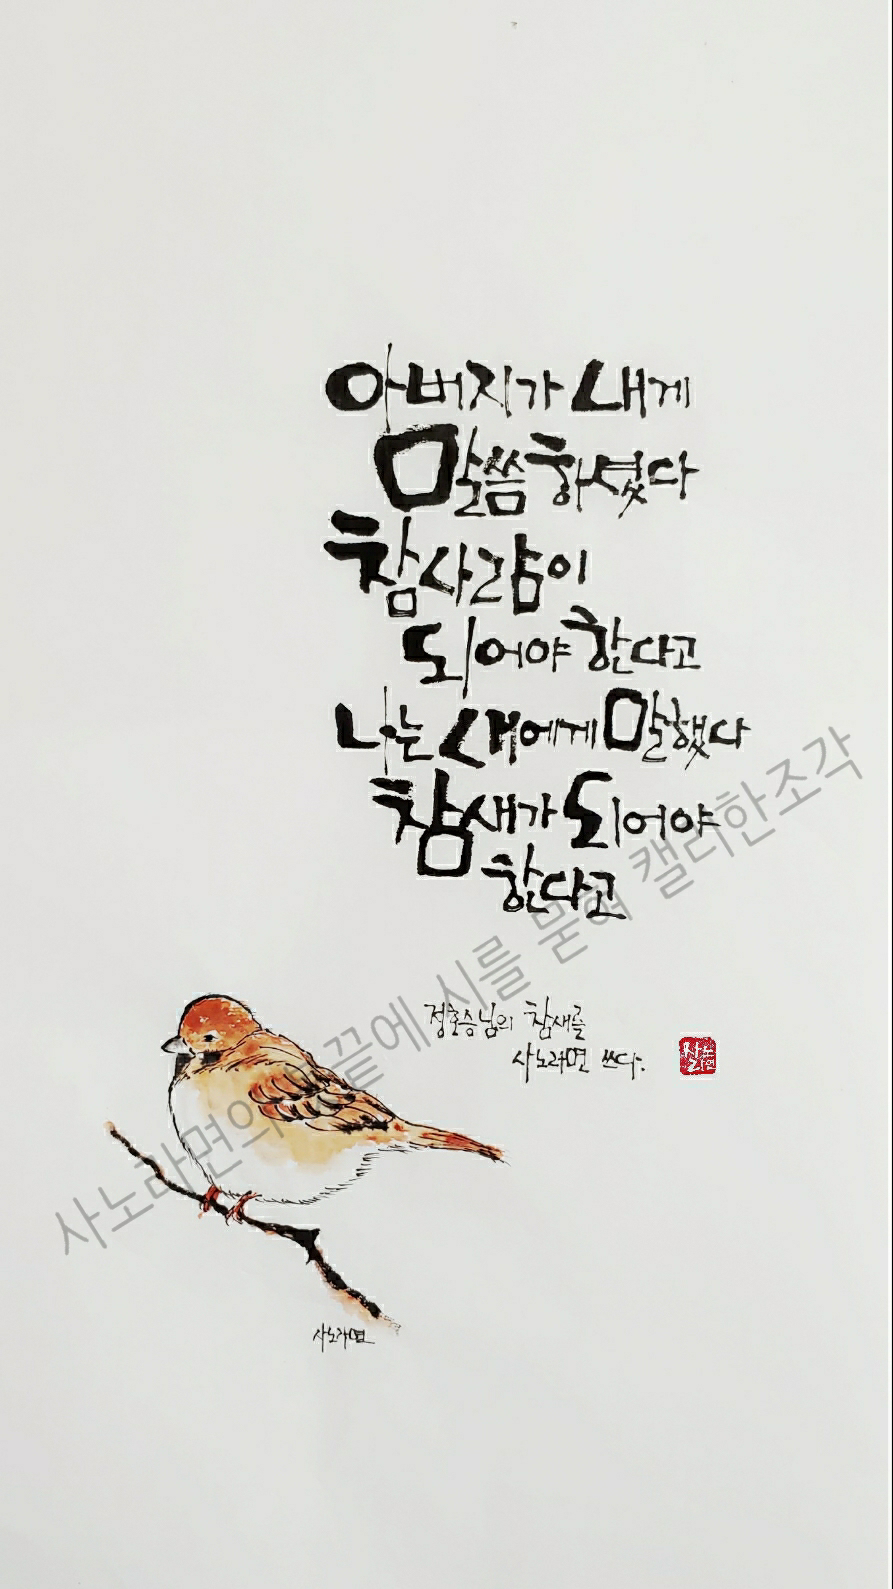 아버지가 내게
말씀하셨다
참사람이
되어야 한다고
나는 새에게 말했다
참새가 되어야
한다고
정호승님의 참새를
사노라면 쓰다.
사노라면
사노라면의 끝에 시를 묻혀 캘리한조각